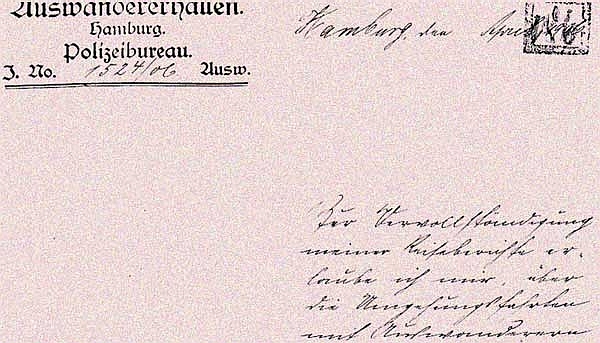 Auswandererhallen.
Hamburg.
Polizeibureau.
J. No. 1524/06 Ausw.
Hamburg, den
Zur Vervollständigung
meiner Reiseberichte er-
laube ich mir, über
die Umgehungsfahrten
mit Auswanderern